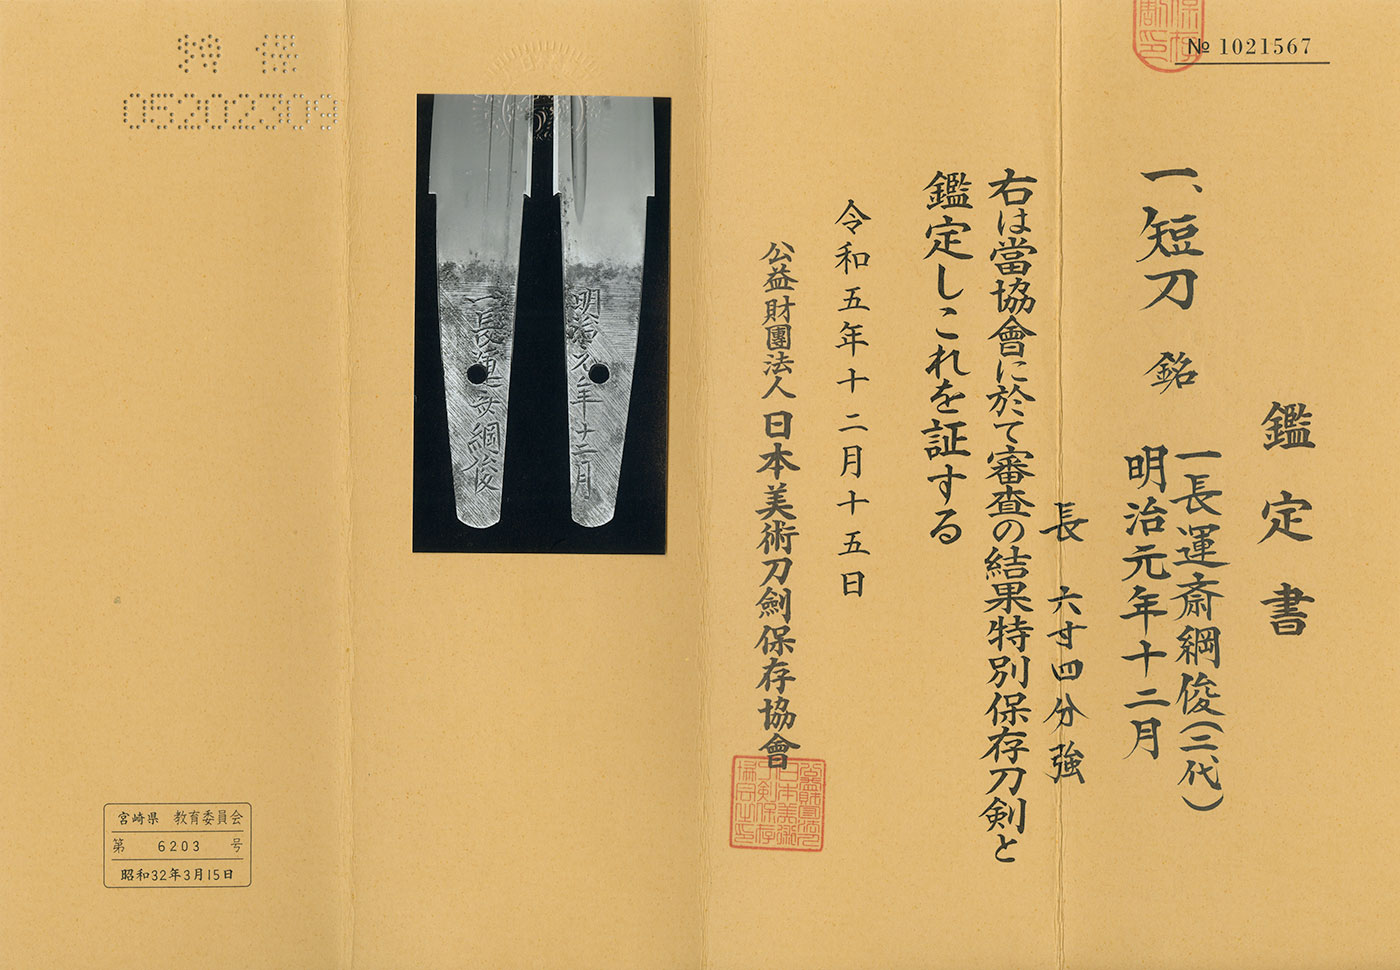 № 1021567
鑑定書
一、短刀 銘 一長運斎綱俊(二代)
明治元年十二月
長 六寸四分強
右は當協會に於て審査の結果特別保存刀剣と
鑑定しこれを証する
令和五年十二月十五日
公益財團法人 日本美術刀劍保存協會
明治元年十二月
一長運斎綱俊
特保
05202309
宮崎県 教育委員会
第 6203 号
昭和32年3月15日